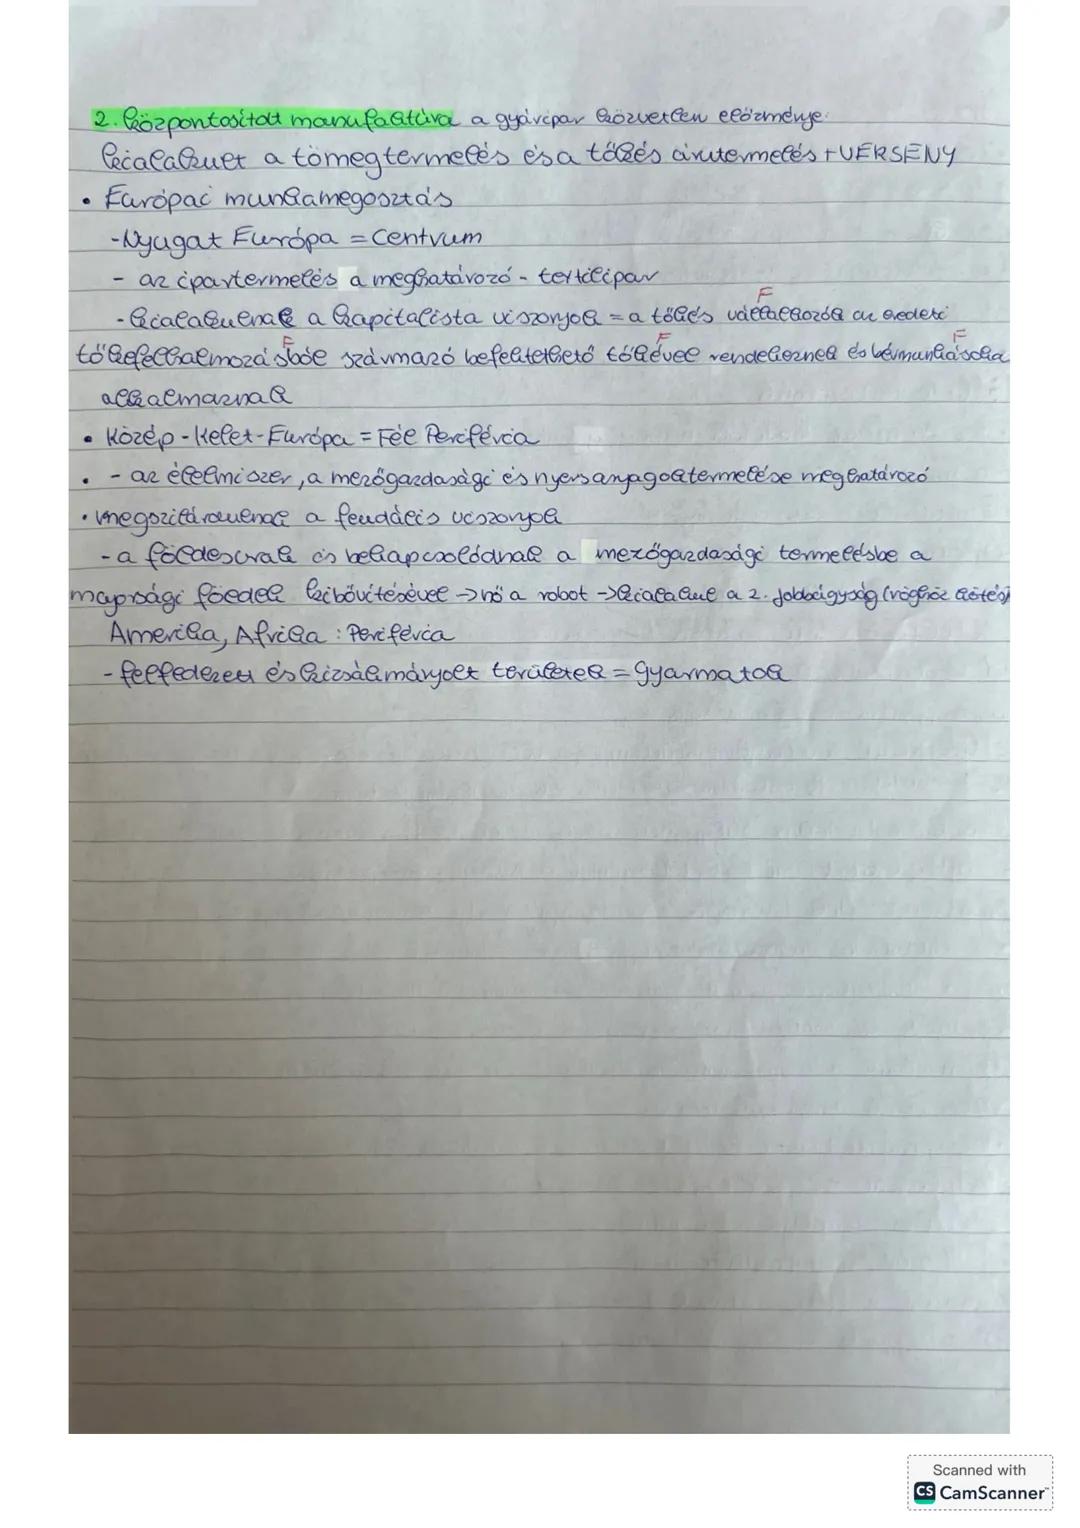 2. központosított manufaktúra a gyáripar közvetlen előzménye.
kialakult a tömegtermelés és a tőkés árutermelés + VERSENY
• Európai munkamegosztás
- Nyugat Európa = Centrum
- az ipartermelés a meghatározó - textilipar
- kialakulnak a kapitalista viszonyok = a tőkés vállalkozók az eredeti
F
tőkefelhalmozásból származó befektethető tőkével rendelkeznek és bérmunkásokat
F F F
alkalmaznak
• Közép-Kelet-Európa = Fél Periféria
• - az élelmiszer, a mezőgazdasági és nyersanyagok termelése meghatározó
• megszilárdulnak a feudális viszonyok
- a földesurak is bekapcsolódnak a mezőgazdasági termelésbe a
majorsági földek kibővítésével → nő a robot → kialakul a 2. jobbágyság (röghöz kötés)
Amerika, Afrika : Periféria
- felfedezett és kizsákmányolt területek = gyarmatok
Scanned with
CS CamScanner™